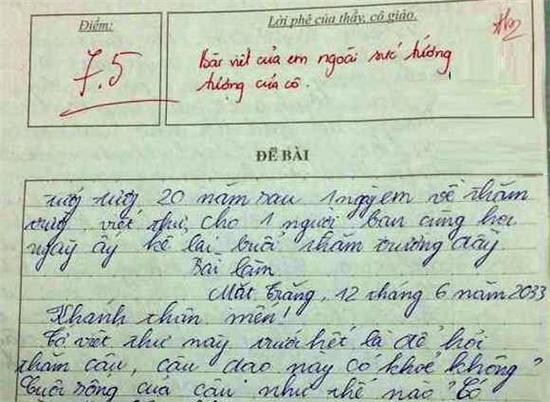 Điểm:
7.5
Lời phê của thầy, cô giáo.
Bài viết của em ngoài sức tưởng
tượng của cô.
ĐỀ BÀI
20 năm sau 1 ngày em về thăm
trường viết thư, cho 1 người bạn cùng học
ngày ấy kể lại buổi thăm trường đầy
Bài làm
Mặt Trăng, 12 tháng 6 năm 2033
Khánh thân mến!
Tớ viết thư này trước hết là để hỏi
thăm cậu, cậu dạo này có khoẻ không?
Cuộc sống của cậu như thế nào? Có